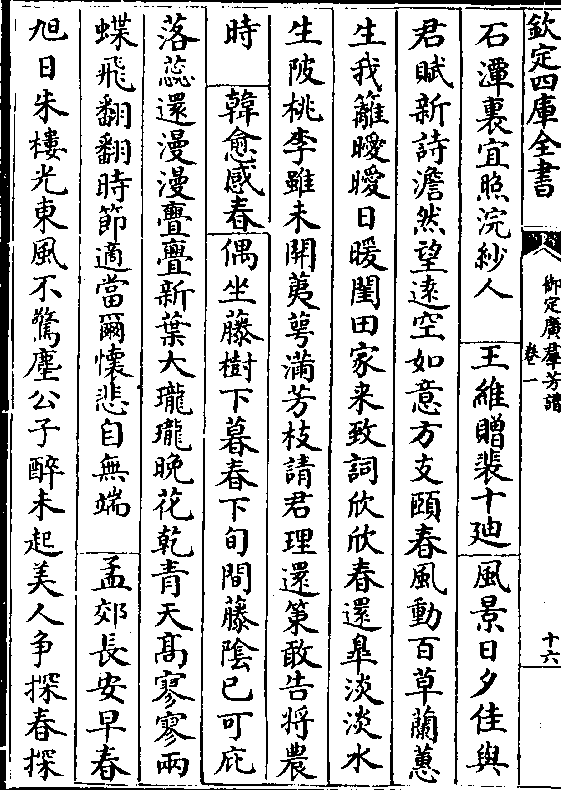 欽定四庫全書
御定廣羣芳譜
卷一
十六
石潭裏宜照浣紗人　王維贈裴十廸　風景日夕佳與
君賦新詩澹然望遠空如意方支頤春風動百草蘭蕙
生我籬曖曖日暖閨田家来致詞欣欣春還臯淡淡水
生陂桃李雖未開荑萼滿芳枝請君理還策敢告將農
時　韓愈感春　偶坐藤樹下暮春下旬間藤陰已可庇
落蕊還漫漫亹亹新葉大瓏瓏晚花乾青天高寥寥兩
蝶飛翻翻時節適當爾懷悲自無端　孟郊長安早春
旭日朱樓光東風不驚塵公子醉未起美人争探春探